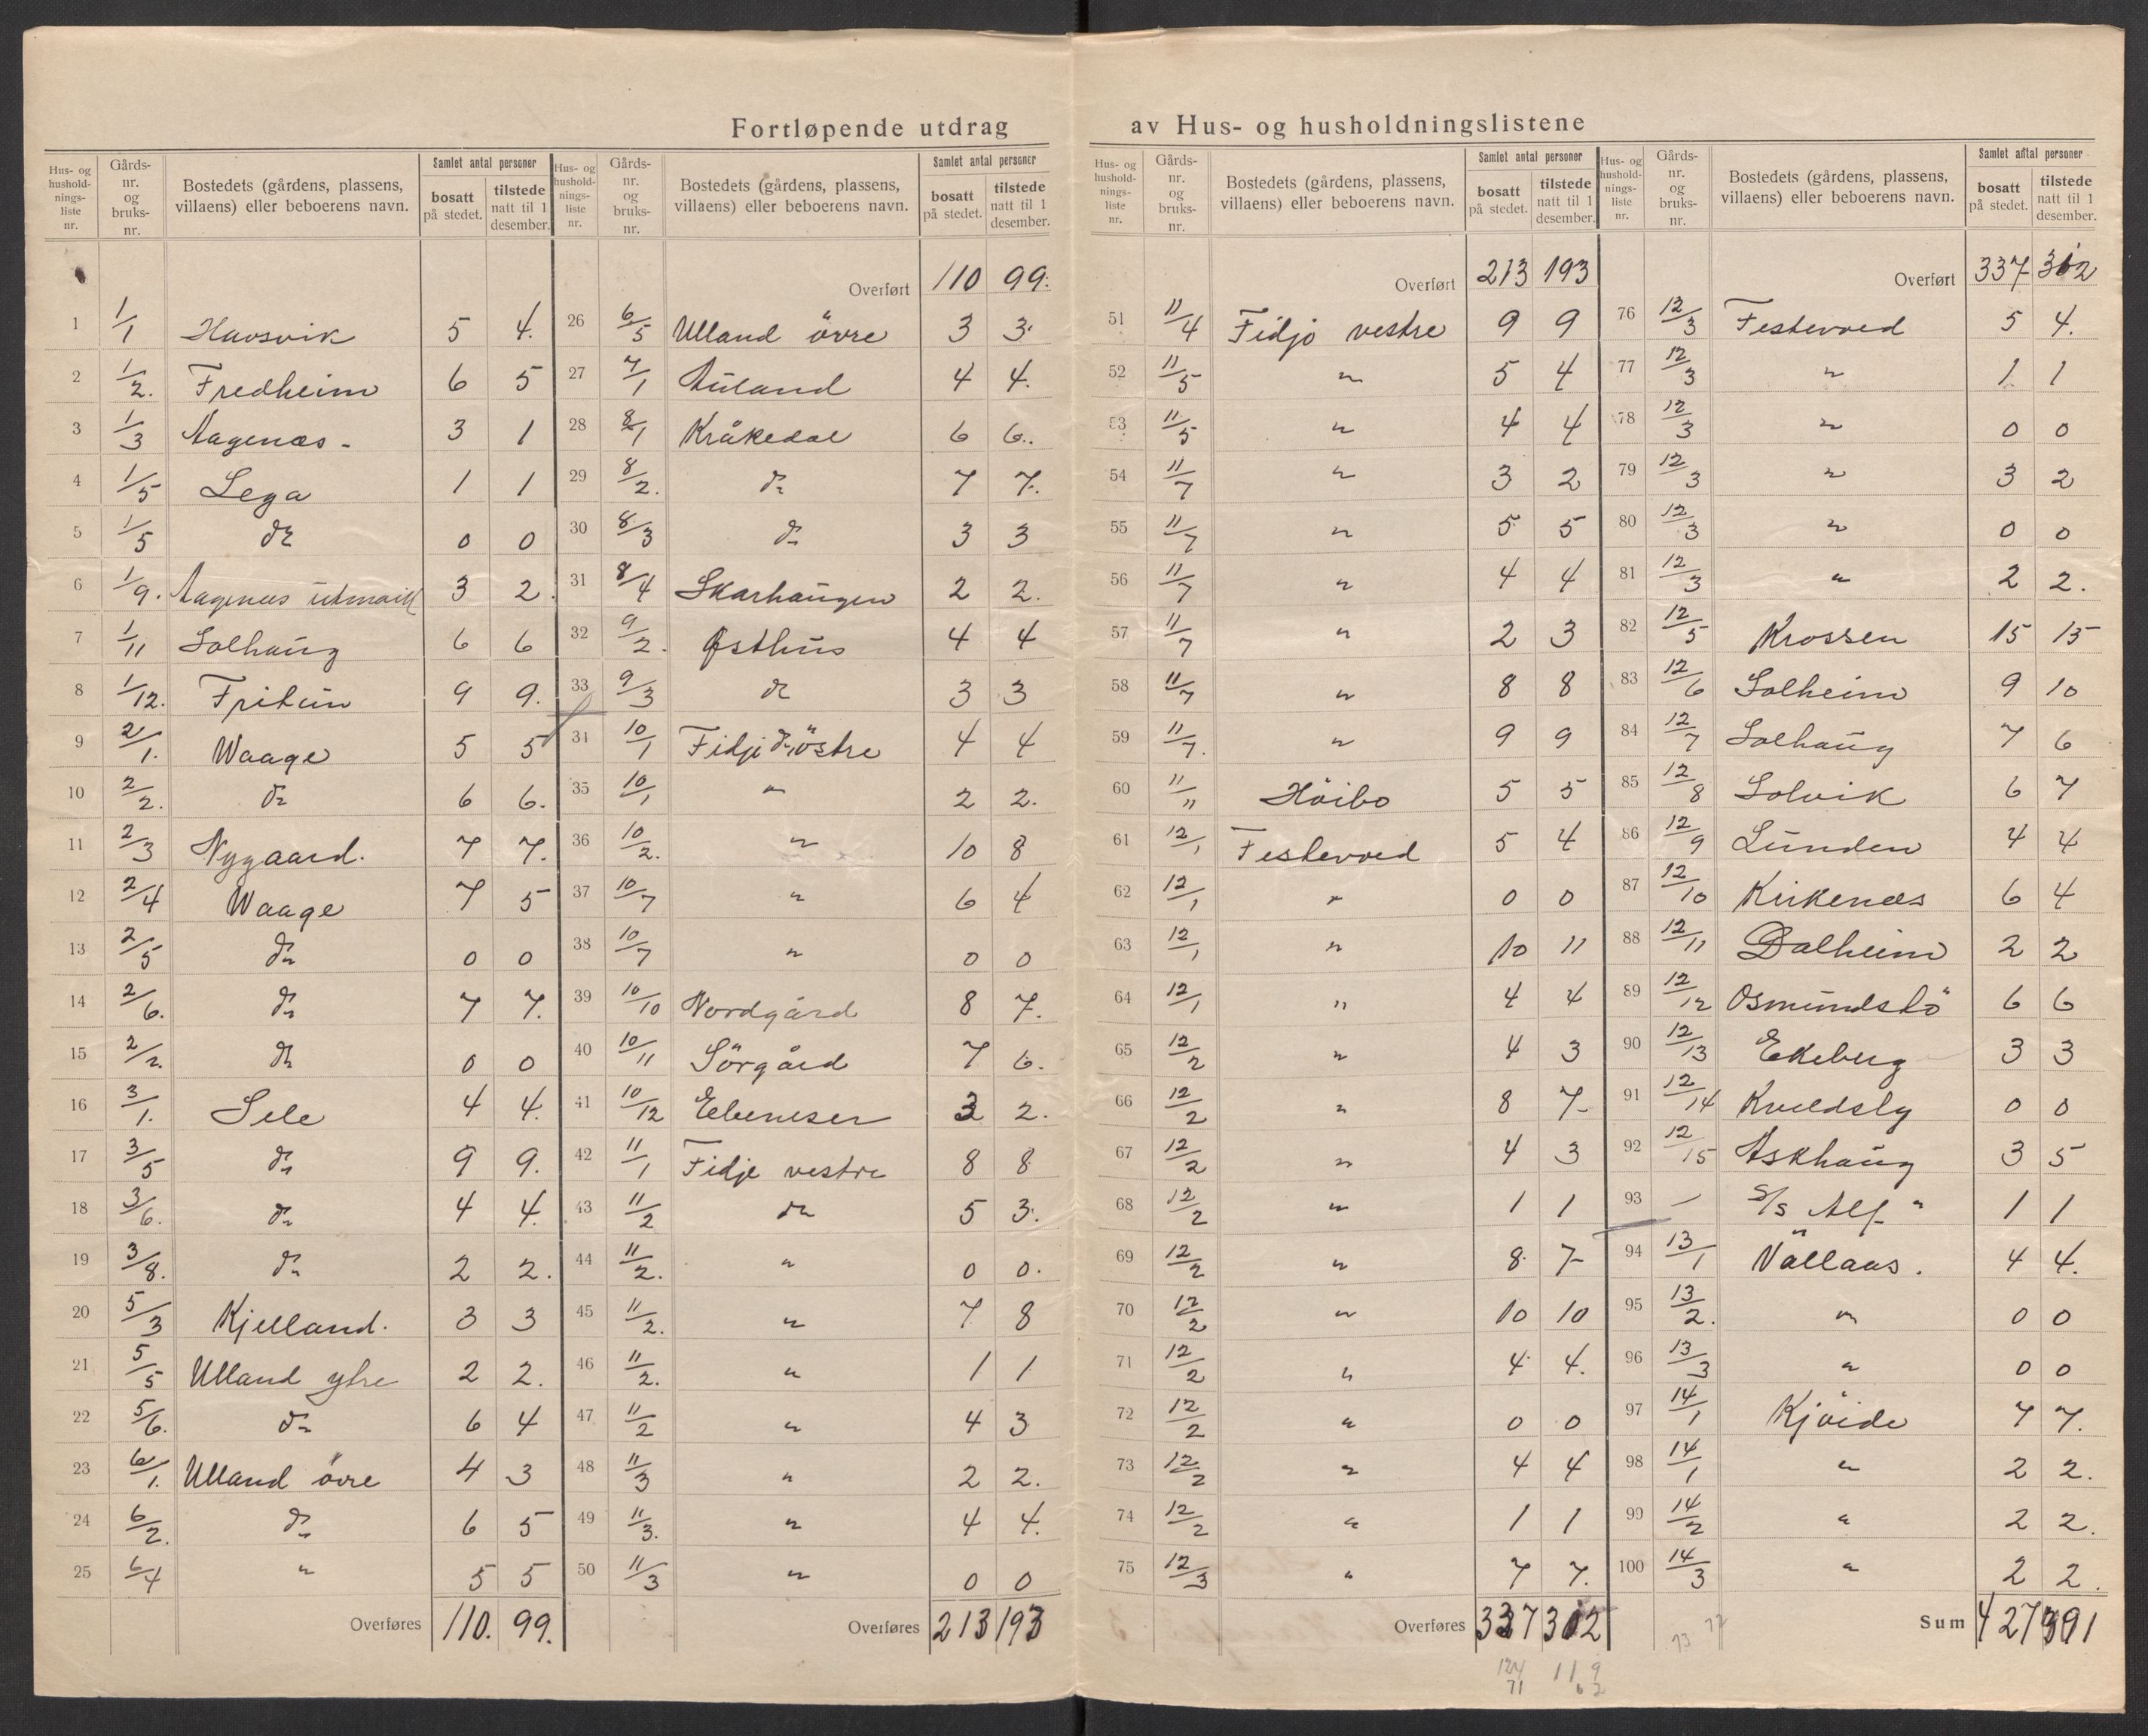 Fortløpende utdrag av Hus- og husholdningslistene
Hus- og husholdnings-liste nr. | Gårds-nr. og bruks-nr. | Bostedets (gårdens, plassens, villaens) eller beboerens navn. | Samlet antal personer bosatt på stedet. | tilstede natt til 1 desember.
1 1/1 Havsvik 5 4.
2 1/2. Fredheim 6 5
3 1/3 Aagenæs - 3 1
4 1/5 Lega 1 1
5 1/5 do 0 0
6 1/9. Aagenæs utmark 3 2.
7 1/11 Solhaug 6 6
8 1/12. Fritun 9 9.
9 2/1. Waage 5 5
10 2/2. do 6 6.
11 2/3 Nygaard. 7 7.
12 2/4 Waage 7 5
13 2/5 do 0 0
14 2/6. do 7 7.
15 2/2. do 0 0
16 3/1. Sele 4 4.
17 3/5 do 9 9.
18 3/6. do 4 4.
19 3/8. do 2 2.
20 5/3 Kjelland. 3 3
21 5/5 Ulland ytre 2 2.
22 5/6. do 6 4
23 6/1. Ulland övre 4 3
24 6/2. do 6 5
25 6/4 " 5 5
Overføres 110. 99.
Hus- og husholdnings-liste nr. | Gårds-nr. og bruks-nr. | Bostedets (gårdens, plassens, villaens) eller beboerens navn. | Samlet antal personer bosatt på stedet. | tilstede natt til 1 desember.
Overført 110 99.
26 6/5 Ulland övre 3 3.
27 7/1 Auland 4 4.
28 8/1 Kråkedal 6 6.
29 8/2. do 7 7.
30 8/3 do 3 3
31 8/4 Skarhaugen 2 2.
32 9/2. Østhus 4 4
33 9/3 do 3 3
34 10/1 Fidje östre 4 4
35 10/1 " 2 2.
36 10/2. " 10 8
37 10/7 " 6 4
38 10/7 " 0 0
39 10/10 Nordgård 8 7.
40 10/11 Sörgård 7 6.
41 10/12 Ebeneser 3 2.
42 11/1 Fidje vestre 8 8
43 11/2 do 5 3.
44 11/2. " 0 0.
45 11/2. " 7 8
46 11/2. " 1 1
47 11/2 " 4 3
48 11/3 " 2 2.
49 11/3. " 4 4.
50 11/3 " 0 0
Overføres 213 193
Hus- og husholdnings-liste nr. | Gårds-nr. og bruks-nr. | Bostedets (gårdens, plassens, villaens) eller beboerens navn. | Samlet antal personer bosatt på stedet. | tilstede natt til 1 desember.
Overført 213 193
51 11/4 Fidjo vestre 9 9
52 11/5 " 5 4
53 11/5 " 4 4
54 11/7 " 3 2
55 11/7 " 5 5
56 11/7 " 4 4
57 11/7 " 2 3
58 11/7 " 8 8
59 11/7. " 9 9
60 11/11 Höibo 5 5
61 12/1 Festervoed 5 4
62 12/1 " 0 0
63 12/1 " 10 11
64 12/1 " 4 4
65 12/2 " 4 3
66 12/2 " 8 7-
67 12/2 " 4 3
68 12/2 " 1 1
69 12/2 " 8 7-
70 12/2 " 10 10
71 12/2 " 4 4.
72 12/2 " 0 0
73 12/2 " 4 4
74 12/2 " 1 1
75 12/3 " 7 7.
Overføres 337 312
124 119
71 62
Hus- og husholdnings-liste nr. | Gårds-nr. og bruks-nr. | Bostedets (gårdens, plassens, villaens) eller beboerens navn. | Samlet antal personer bosatt på stedet. | tilstede natt til 1 desember.
Overført 337 312
76 12/3 Festervoed 5 4.
77 12/3 " 1 1
78 12/3 " 0 0
79 12/3 " 3 2
80 12/3 " 0 0
81 12/3 " 2 2.
82 12/5 Krossen 15 15
83 12/6 Solheim 9 10
84 12/7 Solhaug 7 6
85 12/8 Solvik 6 7
86 12/9 Lunden 4 4
87 12/10 Kirkenæs 6 4
88 12/11 Dalheim 2 2
89 12/12 Osmundsbö 6 6
90 12/13 Ekeberg 3 3
91 12/14 Kveldsly 0 0
92 12/15 Askhaug 3 5
93 — S/S Alf " 1 1
94 13/1 Vållaas. 4 4.
95 13/2. " 0 0
96 13/3 " 0 0
97 14/1 Kjöide 7 7.
98 14/1 " 2 2.
99 14/2 " 2 2.
100 14/3 " 2 2.
Sum 427 391